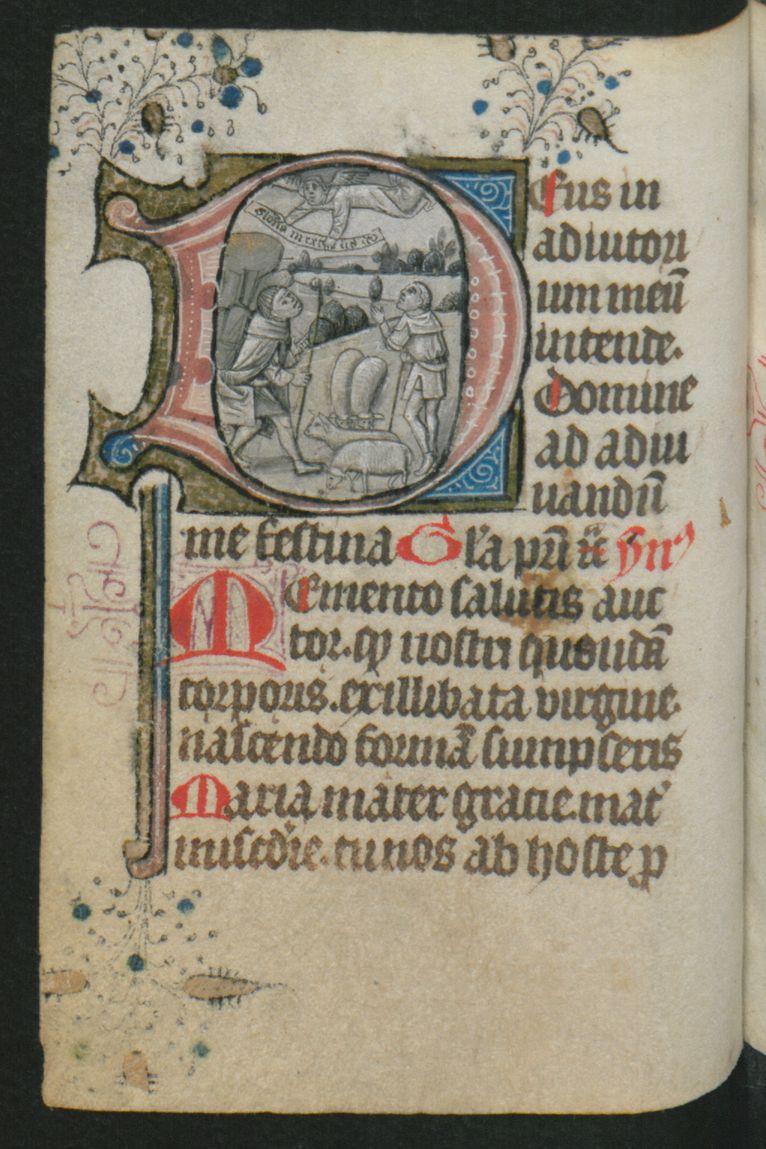 gloria in excelsis deo
Deus in
adiutori
um meū
intende.
Domine
ad adiu
uandū
me festina Gl'a pr̄i ⁊ yn⁹
Memento salutis auc
tor. qᷓ nostri quondā
corporis. ex illibata virgine.
nascendo formā sumpseris
Maria mater gracie. mat'
mis'cd'ie. tu nos ab hoste p